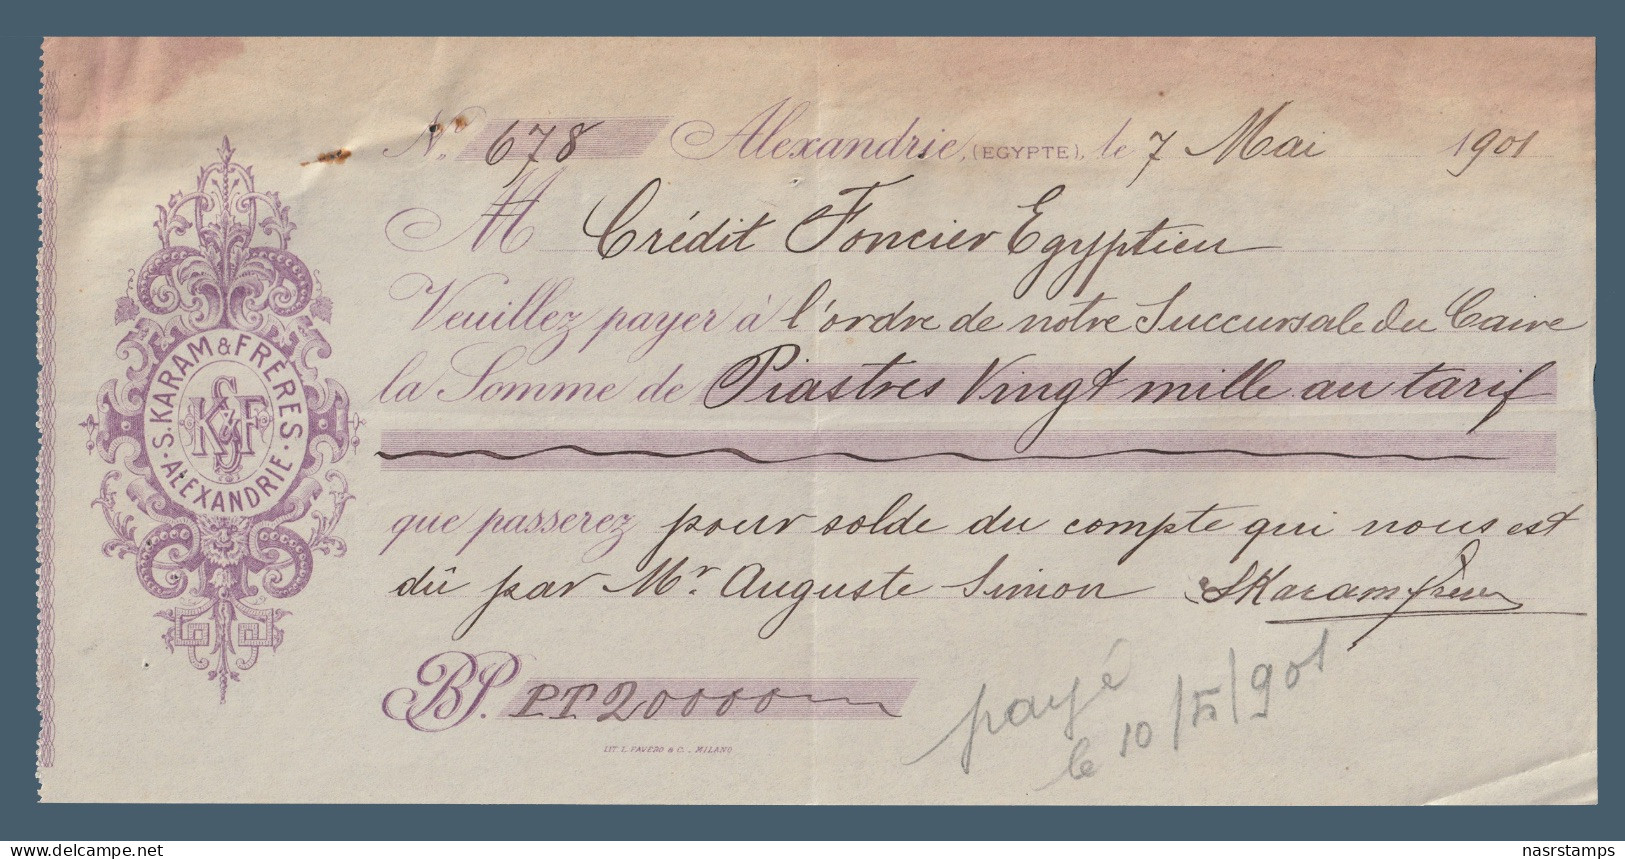 Nº 678 Alexandrie, (EGYPTE), le 7 Mai 1901
M Crédit Foncier Egyptien
Veuillez payer à l'ordre de notre Succursale du Caire
la Somme de Piastres Vingt mille au tarif
que passerez pour solde du compte qui nous est
dû par Mr. Auguste Simon SKaram frères
BP. P.T. 20000
payé
le 10/V/901
LIT. L. FAVERO & C. - MILANO
S. KARAM & FRÈRES.
SK&F
ALEXANDRIE
nasrstamps